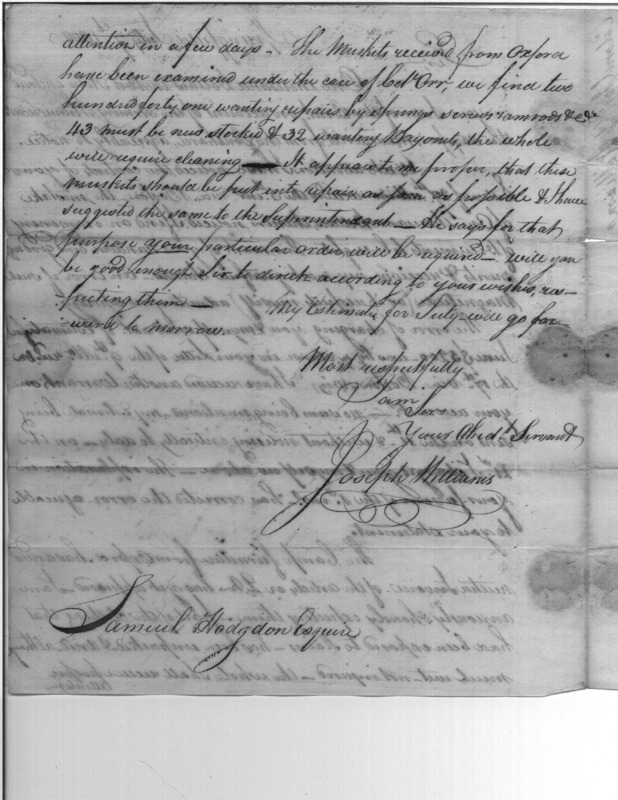 attention in a few days - The Muskets received from Oxford
have been examined under the care of Colo. Orr, we find two
hundred forty one wanting repairs by springs screws ramrods &c
43 must be new stocked & 32 wanting Bayonets, the whole
will require cleaning — It appears to me proper, that these
muskets should be put into repair as soon as possible & have
suggested the same to the Superintendant — He says for that
purpose your particular order will be required — will you
be good enough Sir to direct according to your wishes, res-
-pecting them — My Estimate for July will go for-
-ward to morrow.
Most respectfully
I am
Sir
Your Obedt. Servant
Joseph Williams
Samuel Hodgdon Esquire